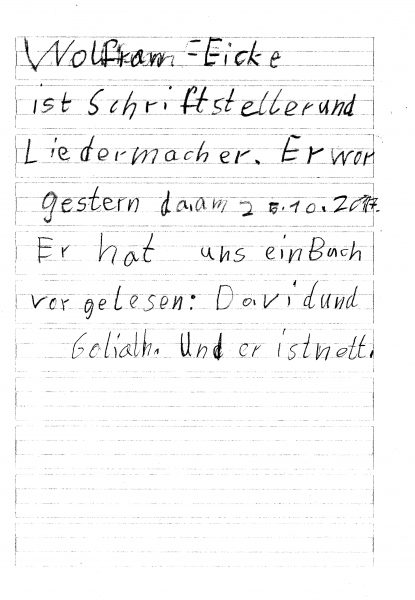 Wolfram-Eicke
ist Schriftstellerund
Liedermacher. Er wor
gestern da.am 25.10.2017.
Er hat uns einBuch
vor gelesen: Davidund
Goliath. Und er istnett.